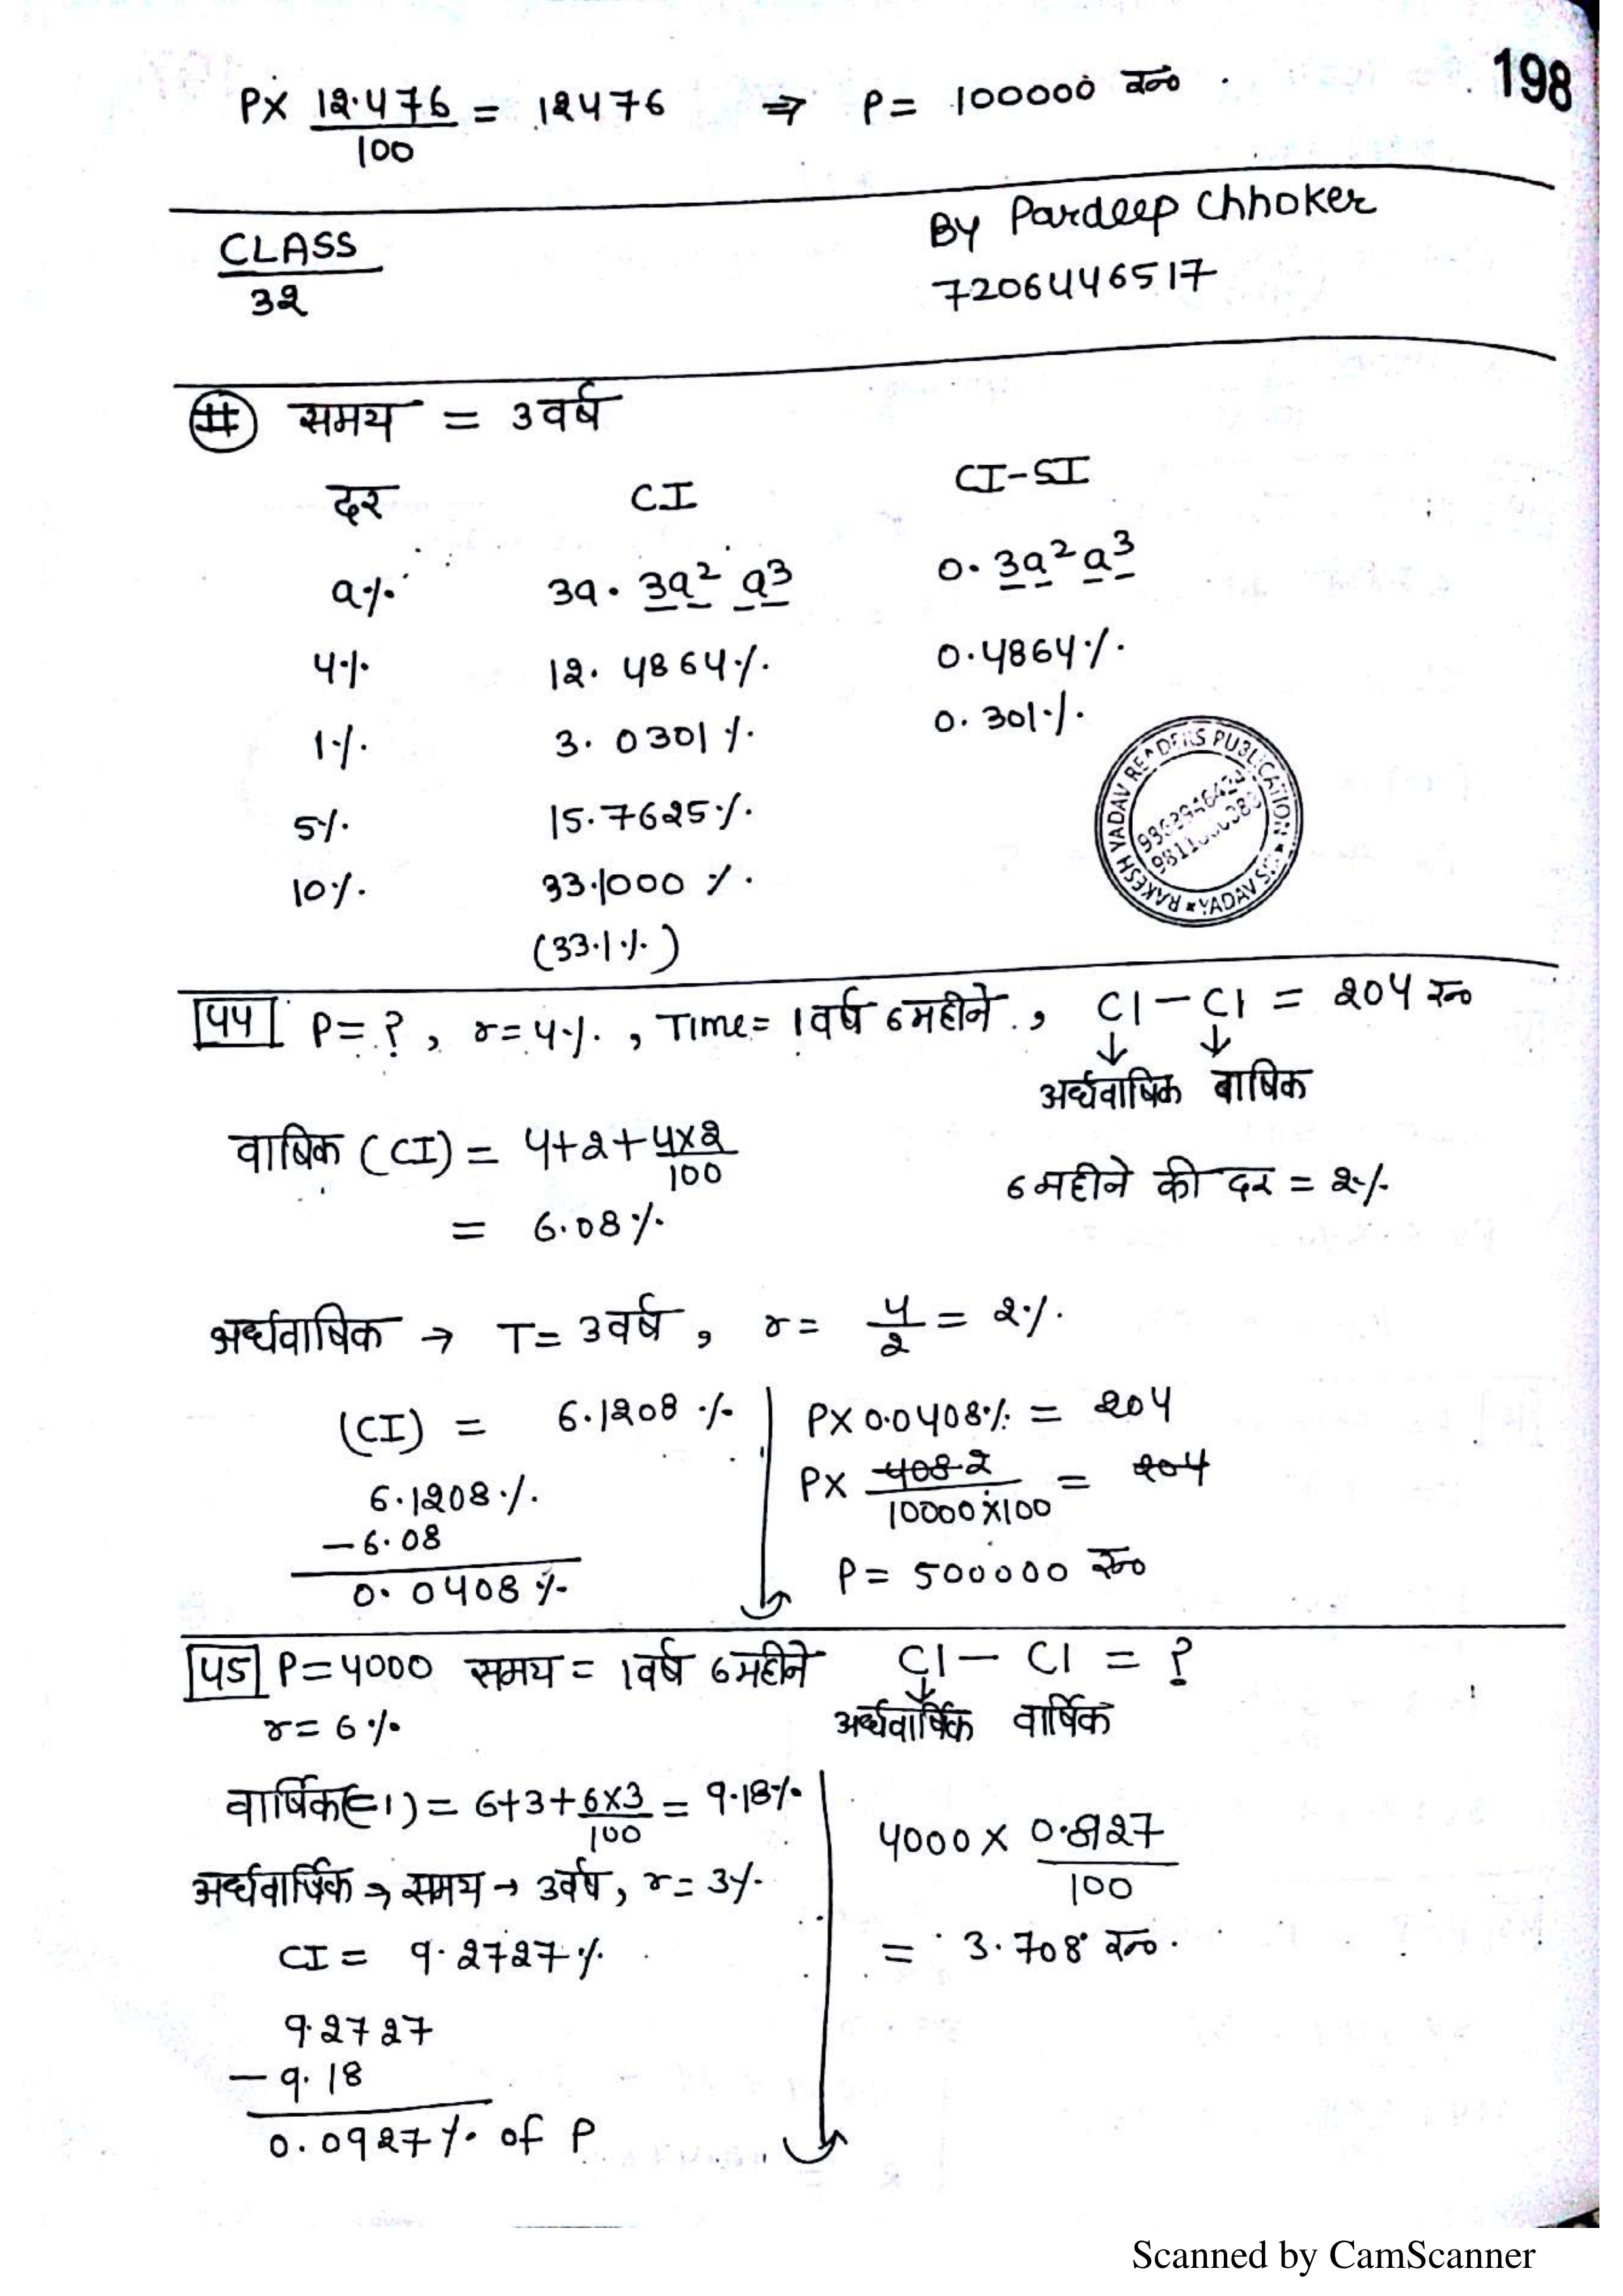 198
P× 12.476/100 = 12476 ⇒ P= 100000 रू०
CLASS 32
By Pardeep Chhoker
7206446517
# समय = 3वर्ष
दर CI CI-SI
a% 3a. 3a² a³ 0. 3a² a³
4% 12. 4864% 0.4864%
1% 3. 0301% 0. 301%
5% 15.7625%
10% 33.1000%
(33.1%)
RAKESH YADAV READERS PUBLICATION
44 P= ?, r=4%, Time= 1वर्ष 6महीने, CI-CI = 204 रू०
↓ ↓
अर्धवार्षिक वार्षिक
वार्षिक (CI) = 4+2+ 4×2/100
6 महीने की दर = 2%
= 6.08%
अर्धवार्षिक → T= 3वर्ष, r= 4/2 = 2%
(CI) = 6.1208%
6.1208%
-6.08
0.0408%
P×0.0408% = 204
P× 408 2/10000×100 = 204
P= 500000 रू०
45 P=4000 समय = 1वर्ष 6महीने CI- CI = ?
↓
r= 6% अर्धवार्षिक वार्षिक
वार्षिक(CI) = 6+3+ 6×3/100 = 9.18%
अर्धवार्षिक → समय → 3वर्ष, r= 3%
CI = 9.2727%
9.2727
-9.18
0.0927% of P
4000 × 0.0927/100
= 3.708 रू०.
Scanned by CamScanner